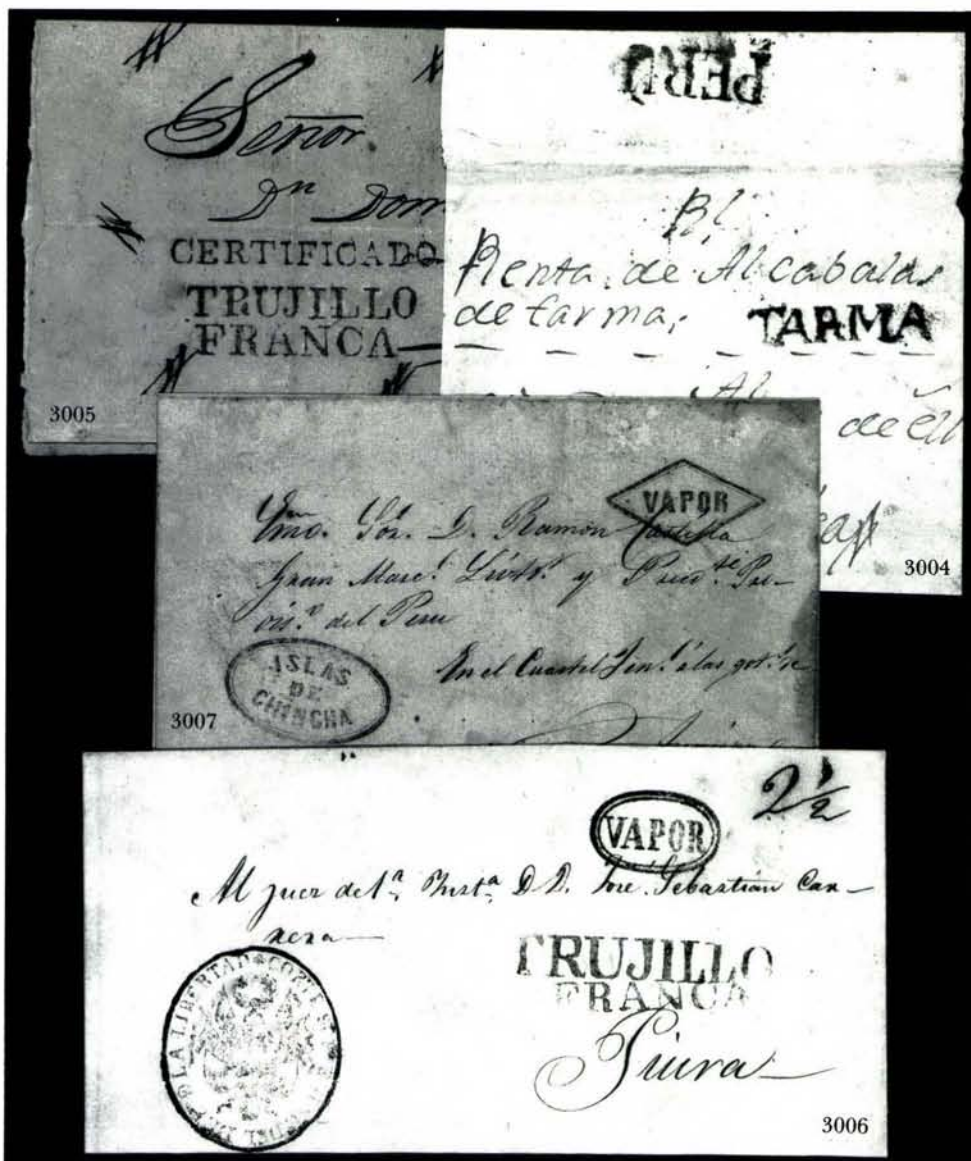 Señor
Dn Dom
CERTIFICADO
TRUJILLO
FRANCA
3005
PERU
Rl
Renta de Alcabalas
de tarma,
TARMA
Al
de
3004
VAPOR
Exmo. Sor. D. Ramon Castilla
Gran Marcl. Libtr. y Presdte. Pro-
vis.o del Peru
ISLAS
DE
CHINCHA
En el Cuartel Jenl.
3007
2 1/2
VAPOR
Al juez de 1a. Insta. D. D. José Sebastián Car-
rera
TRUJILLO
FRANCA
LA LIBERTAD CORTE
Piura
3006